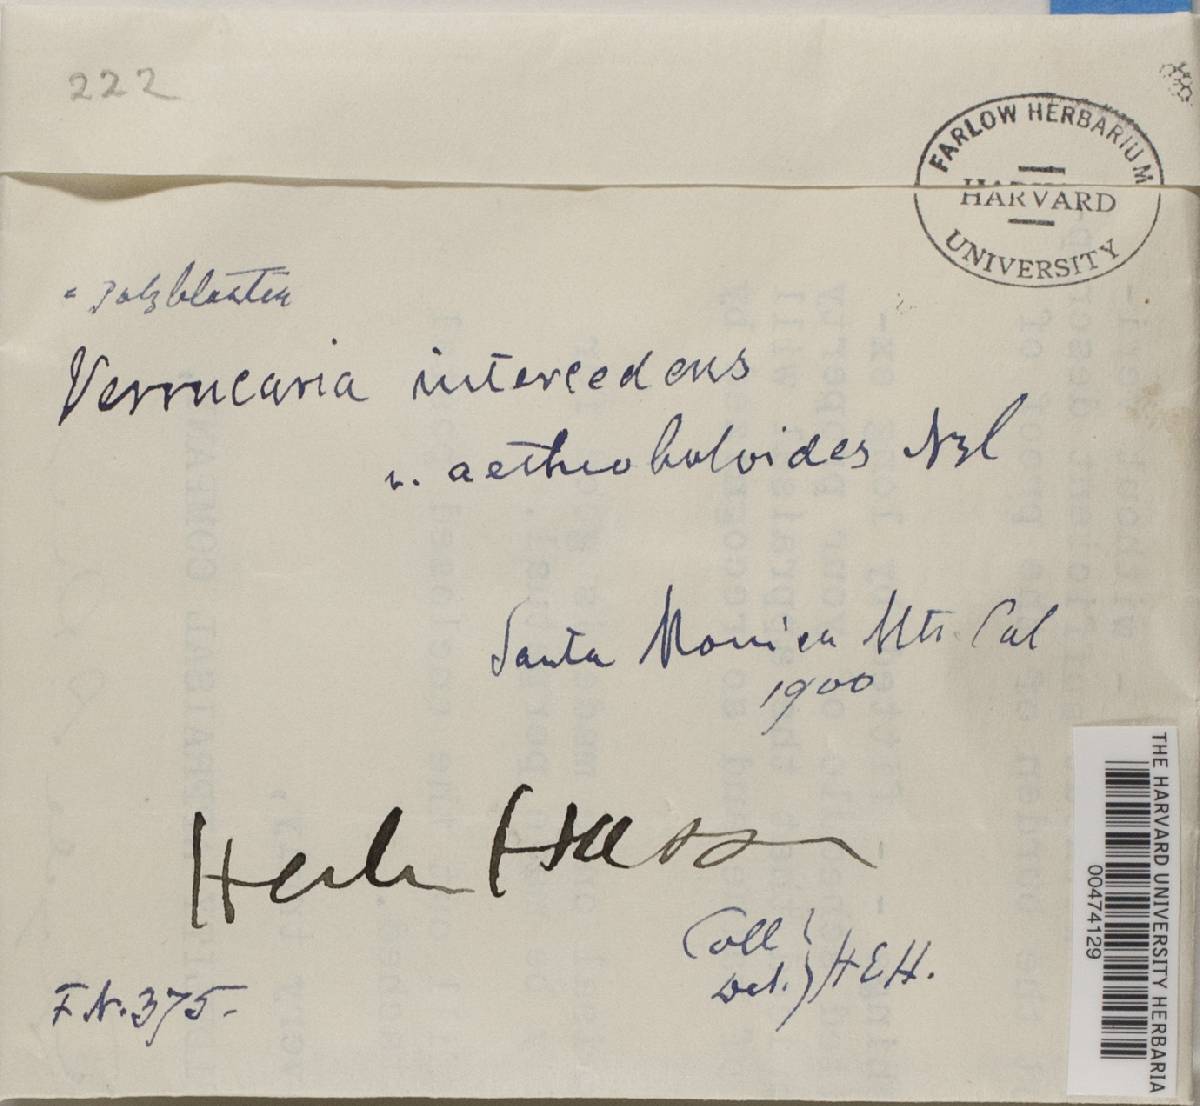 222
FARLOW HERBARIUM
HARVARD
UNIVERSITY
Verrucaria intercedens
v. aethioboloides Nyl
Santa Monica Mts. Cal
1900
Herb. Hasse
Coll
Det. } HEH.
F. N. 375-
THE HARVARD UNIVERSITY HERBARIA
00474129